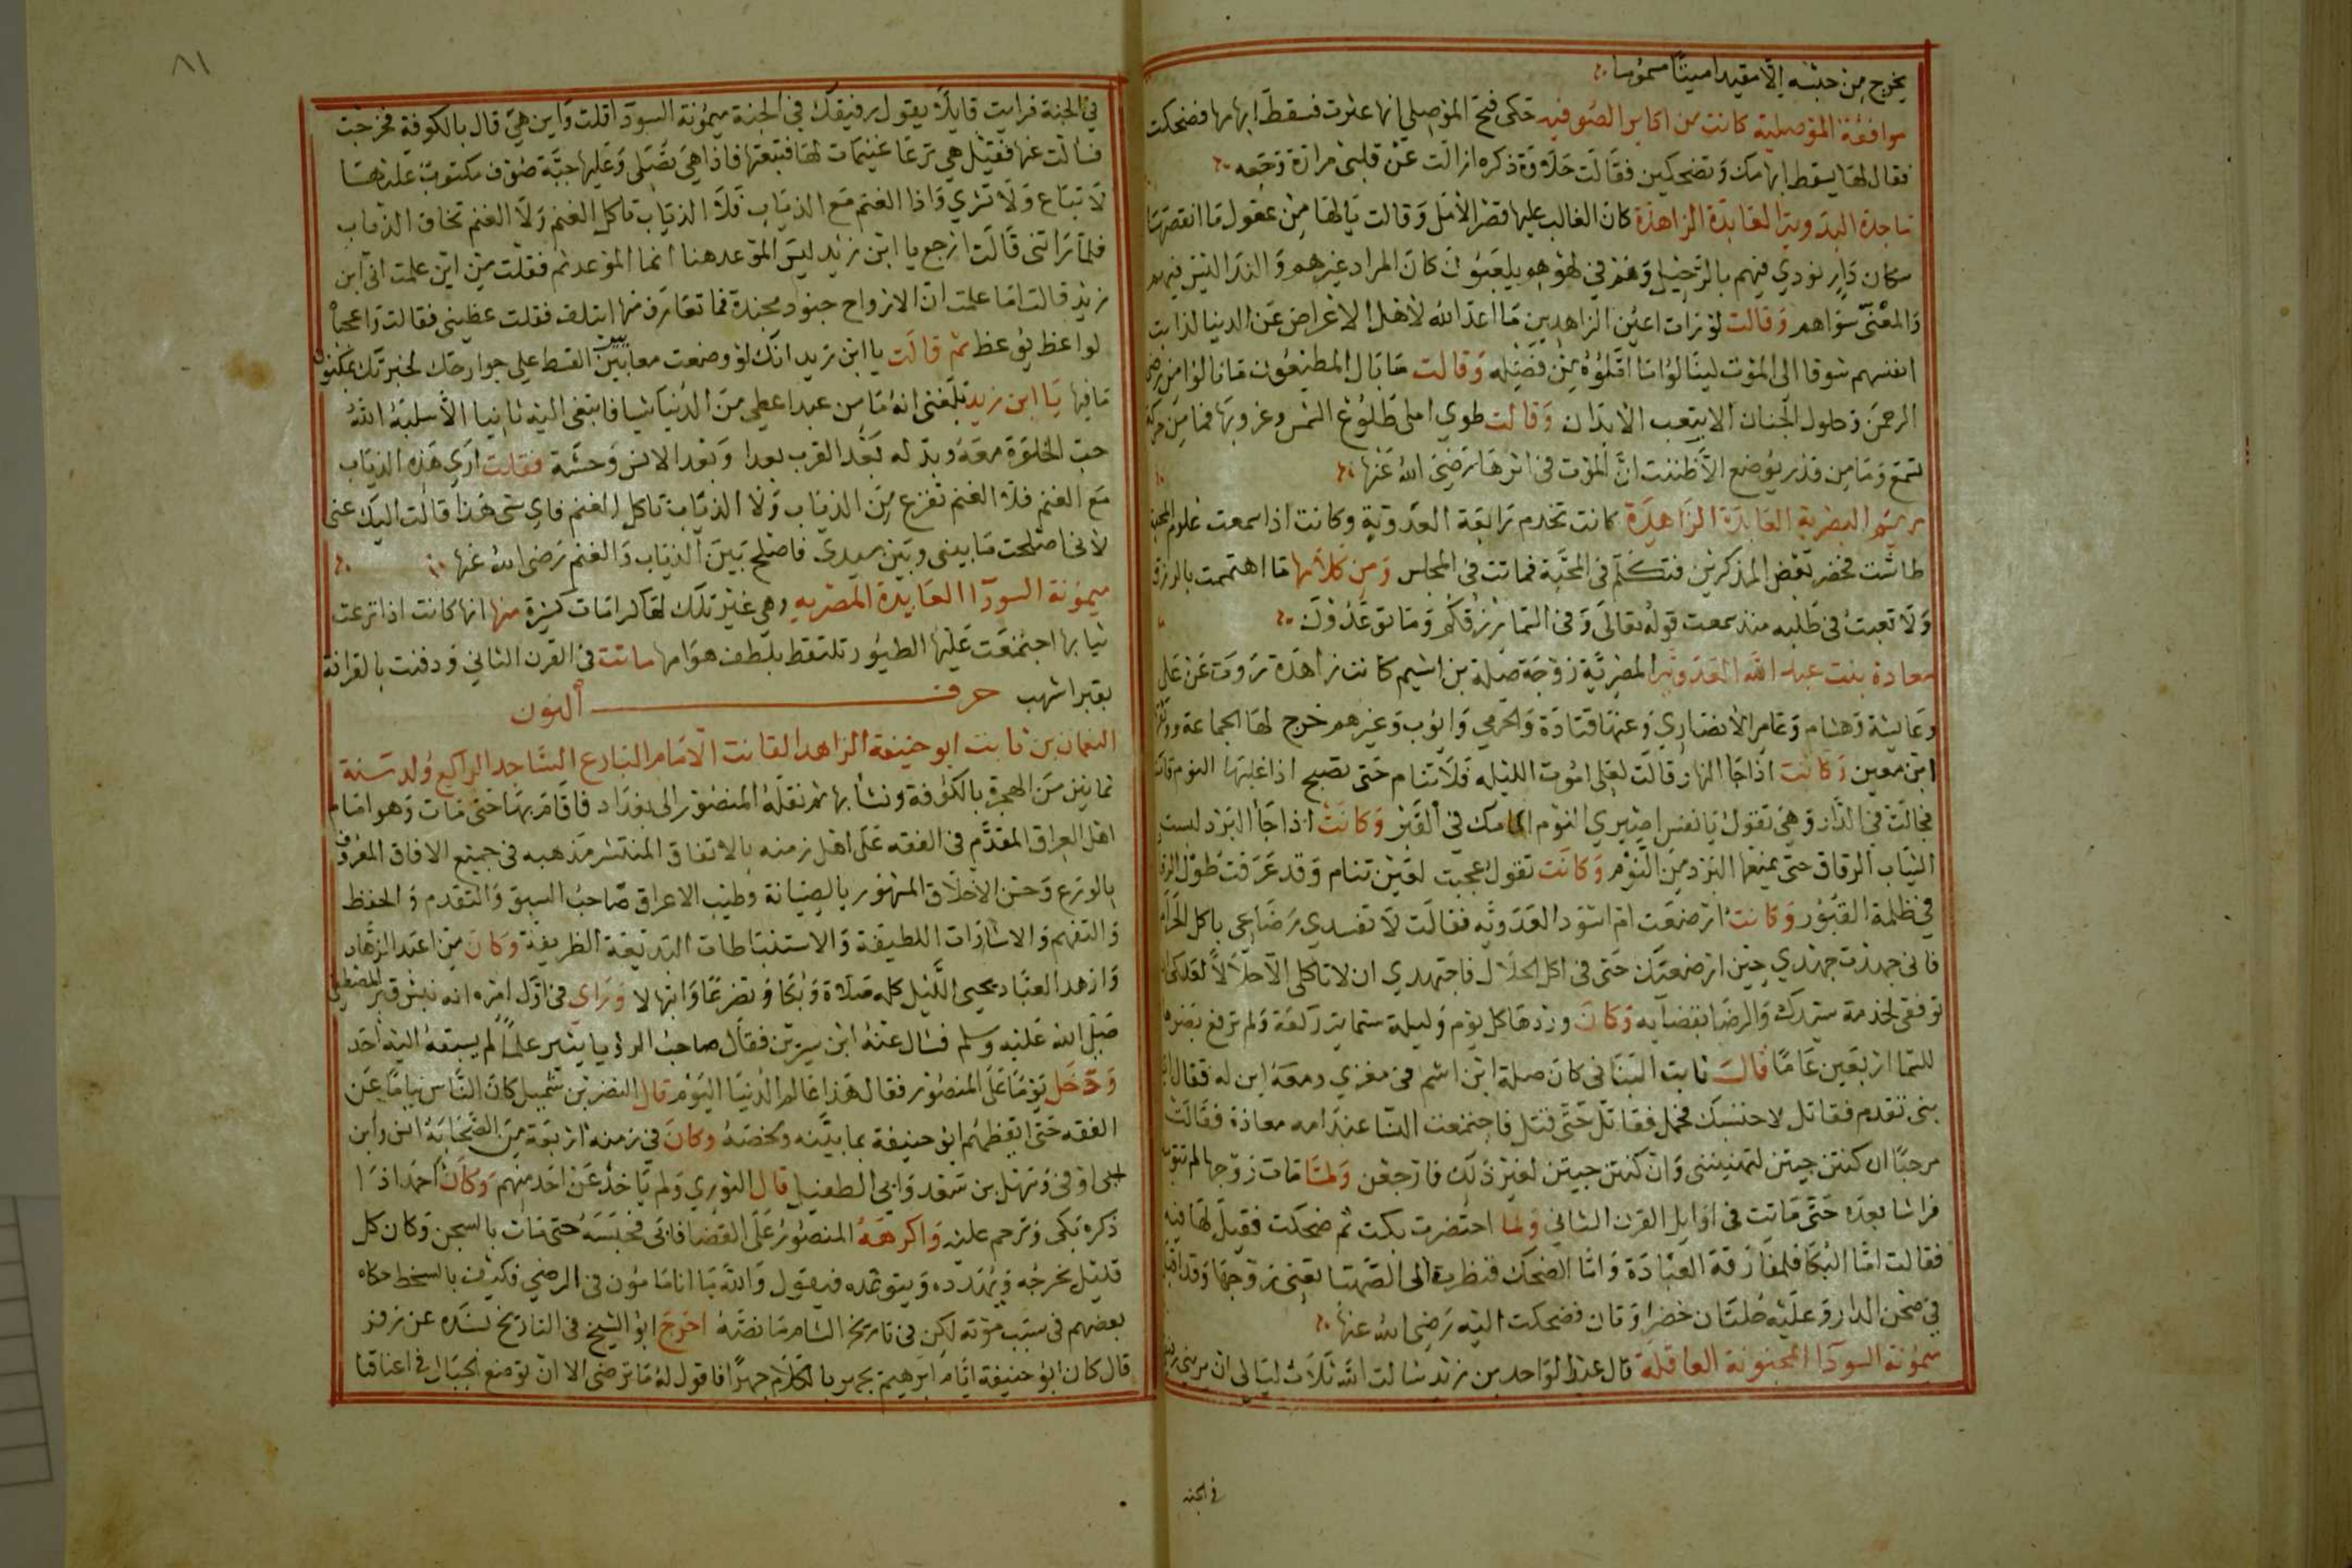 يخرج من حبسه الا مقيدا ميتا مسموما
موافقة الموصلية كانت من اكابر الصوفيه حكى فتح الموصلي انها عثرت فسقط ابهامها فضحكت
فقال لها يسقط ابهامك وتضحكين فقالت حلاوة ذكره ازالت عن قلبي مرارة وجعه
ماجدة البدوية العابدة الزاهدة كان الغالب عليها قصر الامل وقالت يالها من عقول ما انقصها
سكان دار نودي فيهم بالرحيل وهم في لهوهم يلعبون كان المراد غيرهم والندا ليس فيهم
والمعنى سواهم وقالت لو رات اعين الزاهدين ما اعد الله لاهل الاعراض عن الدنيا لذابت
انفسهم شوقا الى الموت لينالوا ما املوه من فضله وقالت ما نال المطيعون ما نالوا من رضى
الرحمن وحلول الجنان الا بتعب الابدان وقالت طوي املي طلوع الشمس وغروبها فما من حركة
تسمع وما من قدر يوضع الا ظننت ان الموت في اثرها رضي الله عنها
مريم البصرية العابدة الزاهدة كانت تخدم رابعة العدوية وكانت اذا سمعت علوم المحبة
طاشت فحضر بعض المذكرين فتكلم في المحبة فماتت في المجلس ومن كلامها ما اهتممت بالرزق
ولا تعبت في طلبه منذ سمعت قوله تعالى وفي السما رزقكم وما توعدون
معاذة بنت عبد الله العدوية البصرية زوجة صلة بن اشيم كانت زاهدة روت عن علي
وعايشة وهشام وعامر الانصاري وعنها قتادة والجرمي وايوب وغيرهم خرج لها الجماعة ووثقها
ابن معين وكانت اذا جا النهار قالت لعلي اموت الليله فلا تنام حتى تصبح اذا غلبها النوم قامت
فجالت في الدار وهي تقول يا نفس اصبري النوم امامك في القبر وكانت اذا جا البرد لبست
الثياب الرقاق حتى يمنعها البرد من النوم وكانت تقول عجبت لعين تنام وقد عرفت طول الرقاد
في ظلمة القبور وكانت ارضعت ام اسود العدويه فقالت لا تفسدي رضاعي باكل الحرام
فاني جهدت جهدي حين ارضعتك حتى في اكل الحلال فاجتهدي ان لا تاكلي الا حلالا لعلك ان
توفقي لخدمة سيدك والرضا بقضآيه وكان وردها كل يوم وليلة ستماية ركعة ولم ترفع بصرها
للسما اربعين عاما قال ثابت البناني كان صلة ابن اشيم في مغزي ومعه ابن له فقال اي
بني تقدم فقاتل لاحتسبك فحمل فقاتل حتى قتل فاجتمعت النسا عند امه معاذة فقالت
مرحبا ان كنتن جيتن لتهنينني وان كنتن جيتن لغير ذلك فارجعن ولما مات زوجها لم تتوسد
فراشا بعده حتى ماتت في اوايل القرن الثاني ولما احتضرت بكت ثم ضحكت فقيل لها فيه
فقالت اما البكا فلمفارقة العبادة واما الضحك فنظرت الى الصهبا يعني زوجها وقد اقبل
في صحن الدار وعليه حلتان خضراوتان فضحكت اليه رضي الله عنها
ميمونة السودا المجنونة العاقلة قال عبد الواحد بن زيد سالت الله ثلاث ليالي ان يريني رفيقي
في الجنه
٨١
في الجنة فرايت قايلا يقول رفيقك في الجنة ميمونة السودآ فقلت واين هي قال بالكوفة فخرجت
فسالت عنها فقيل هي ترعا غنيمات لها فتبعتها فاذا هي تصلى وعليها جبة صوف مكتوب عليها
لا تباع ولا تشري واذا الغنم مع الذياب فلا الذياب تاكل الغنم ولا الغنم تخاف الذياب
فلما راتني قالت ارجع يا ابن زيد ليس الموعد هنا انما الموعد ثم فقلت من اين علمت اني ابن
زيد قالت اما علمت ان الارواح جنود مجندة فما تعارف منها ايتلف فقلت عظيني فقالت واعجبا
لواعظ يوعظ ثم قالت يا ابن زيد انك لو وضعت معايير القسط على جوارحك لخبرتك بمكنون
ما فيها يا ابن زيد بلغني انه ما من عبد اعطي من الدنيا شيا فابتغى اليه ثانيا الا سلبه الله
حب الخلوة معه وبدله بعد القرب بعدا وبعد الانس وحشة فقلت اري هذه الذياب
مع الغنم فلا الغنم تفزع من الذياب ولا الذياب تاكل الغنم فاي شي هذا قالت اليك عني
لاني اصلحت ما بيني وبين سيدي فاصلح بين الذياب والغنم رضي الله عنها
ميمونة السودآ العابدة المصريه وهي غير تلك لها كرامات كثيرة منها انها كانت اذا نزعت
ثيابها اجتمعت عليها الطيور تلتقط بلطف هوامها ماتت في القرن الثاني ودفنت بالقرافة
بقبر اشهب حرف النون
النعمان بن ثابت ابو حنيفة الزاهد القانت الامام البارع الساجد الراكع ولد سنة
ثمانين من الهجرة بالكوفة ونشا بها ثم نقله المنصور الى بغداد فاقام بها حتى مات وهو امام
اهل العراق المقدم في الفقه على اهل زمنه بالاتفاق المنتشر مذهبه في جميع الافاق المعروف
بالورع وحسن الاخلاق المشهور بالصيانة وطيب الاعراق صاحب السبق والتقدم والحفظ
والتفهم والاشارات اللطيفة والاستنباطات البديعة الظريفة وكان من اعبد الزهاد
وازهد العباد يحيي الليل كله صلاة وبكا وتضرعا وابتهالا وراى في اول امره انه نبش قبر المصطفى
صلى الله عليه وسلم فسال عنه ابن سيرين فقال صاحب الرؤيا ينشر علما لم يسبقه اليه احد
ودخل يوما على المنصور فقال هذا عالم الدنيا اليوم قال النضر بن شميل كان الناس نياما عن
الفقه حتى ايقظهم ابو حنيفة بما بينه ولخصه وكان في زمنه اربعة من الصحابة انس وابن
ابي اوفى وسهل بن سعد وابي الطفيل قال النووي ولم ياخذ عن احد منهم وكان احمد اذا
ذكره بكى وترحم عليه واكرهه المنصور على القضا فابى فحبسه حتى مات بالسجن وكان كل
قليل يخرجه ويهدده ويتوعده فيقول والله ما انا مامون في الرضى فكيف بالسخط حكاه
بعضهم في سبب موته لكن في تاريخ الشام ما نصه اخرج ابو الشيخ في التاريخ بسنده عن زفر
قال كان ابو حنيفة ايام ابرهيم يجهر بالكلام جهرا فاقول له ما ترضى الا ان توضع الحبال في اعناقنا